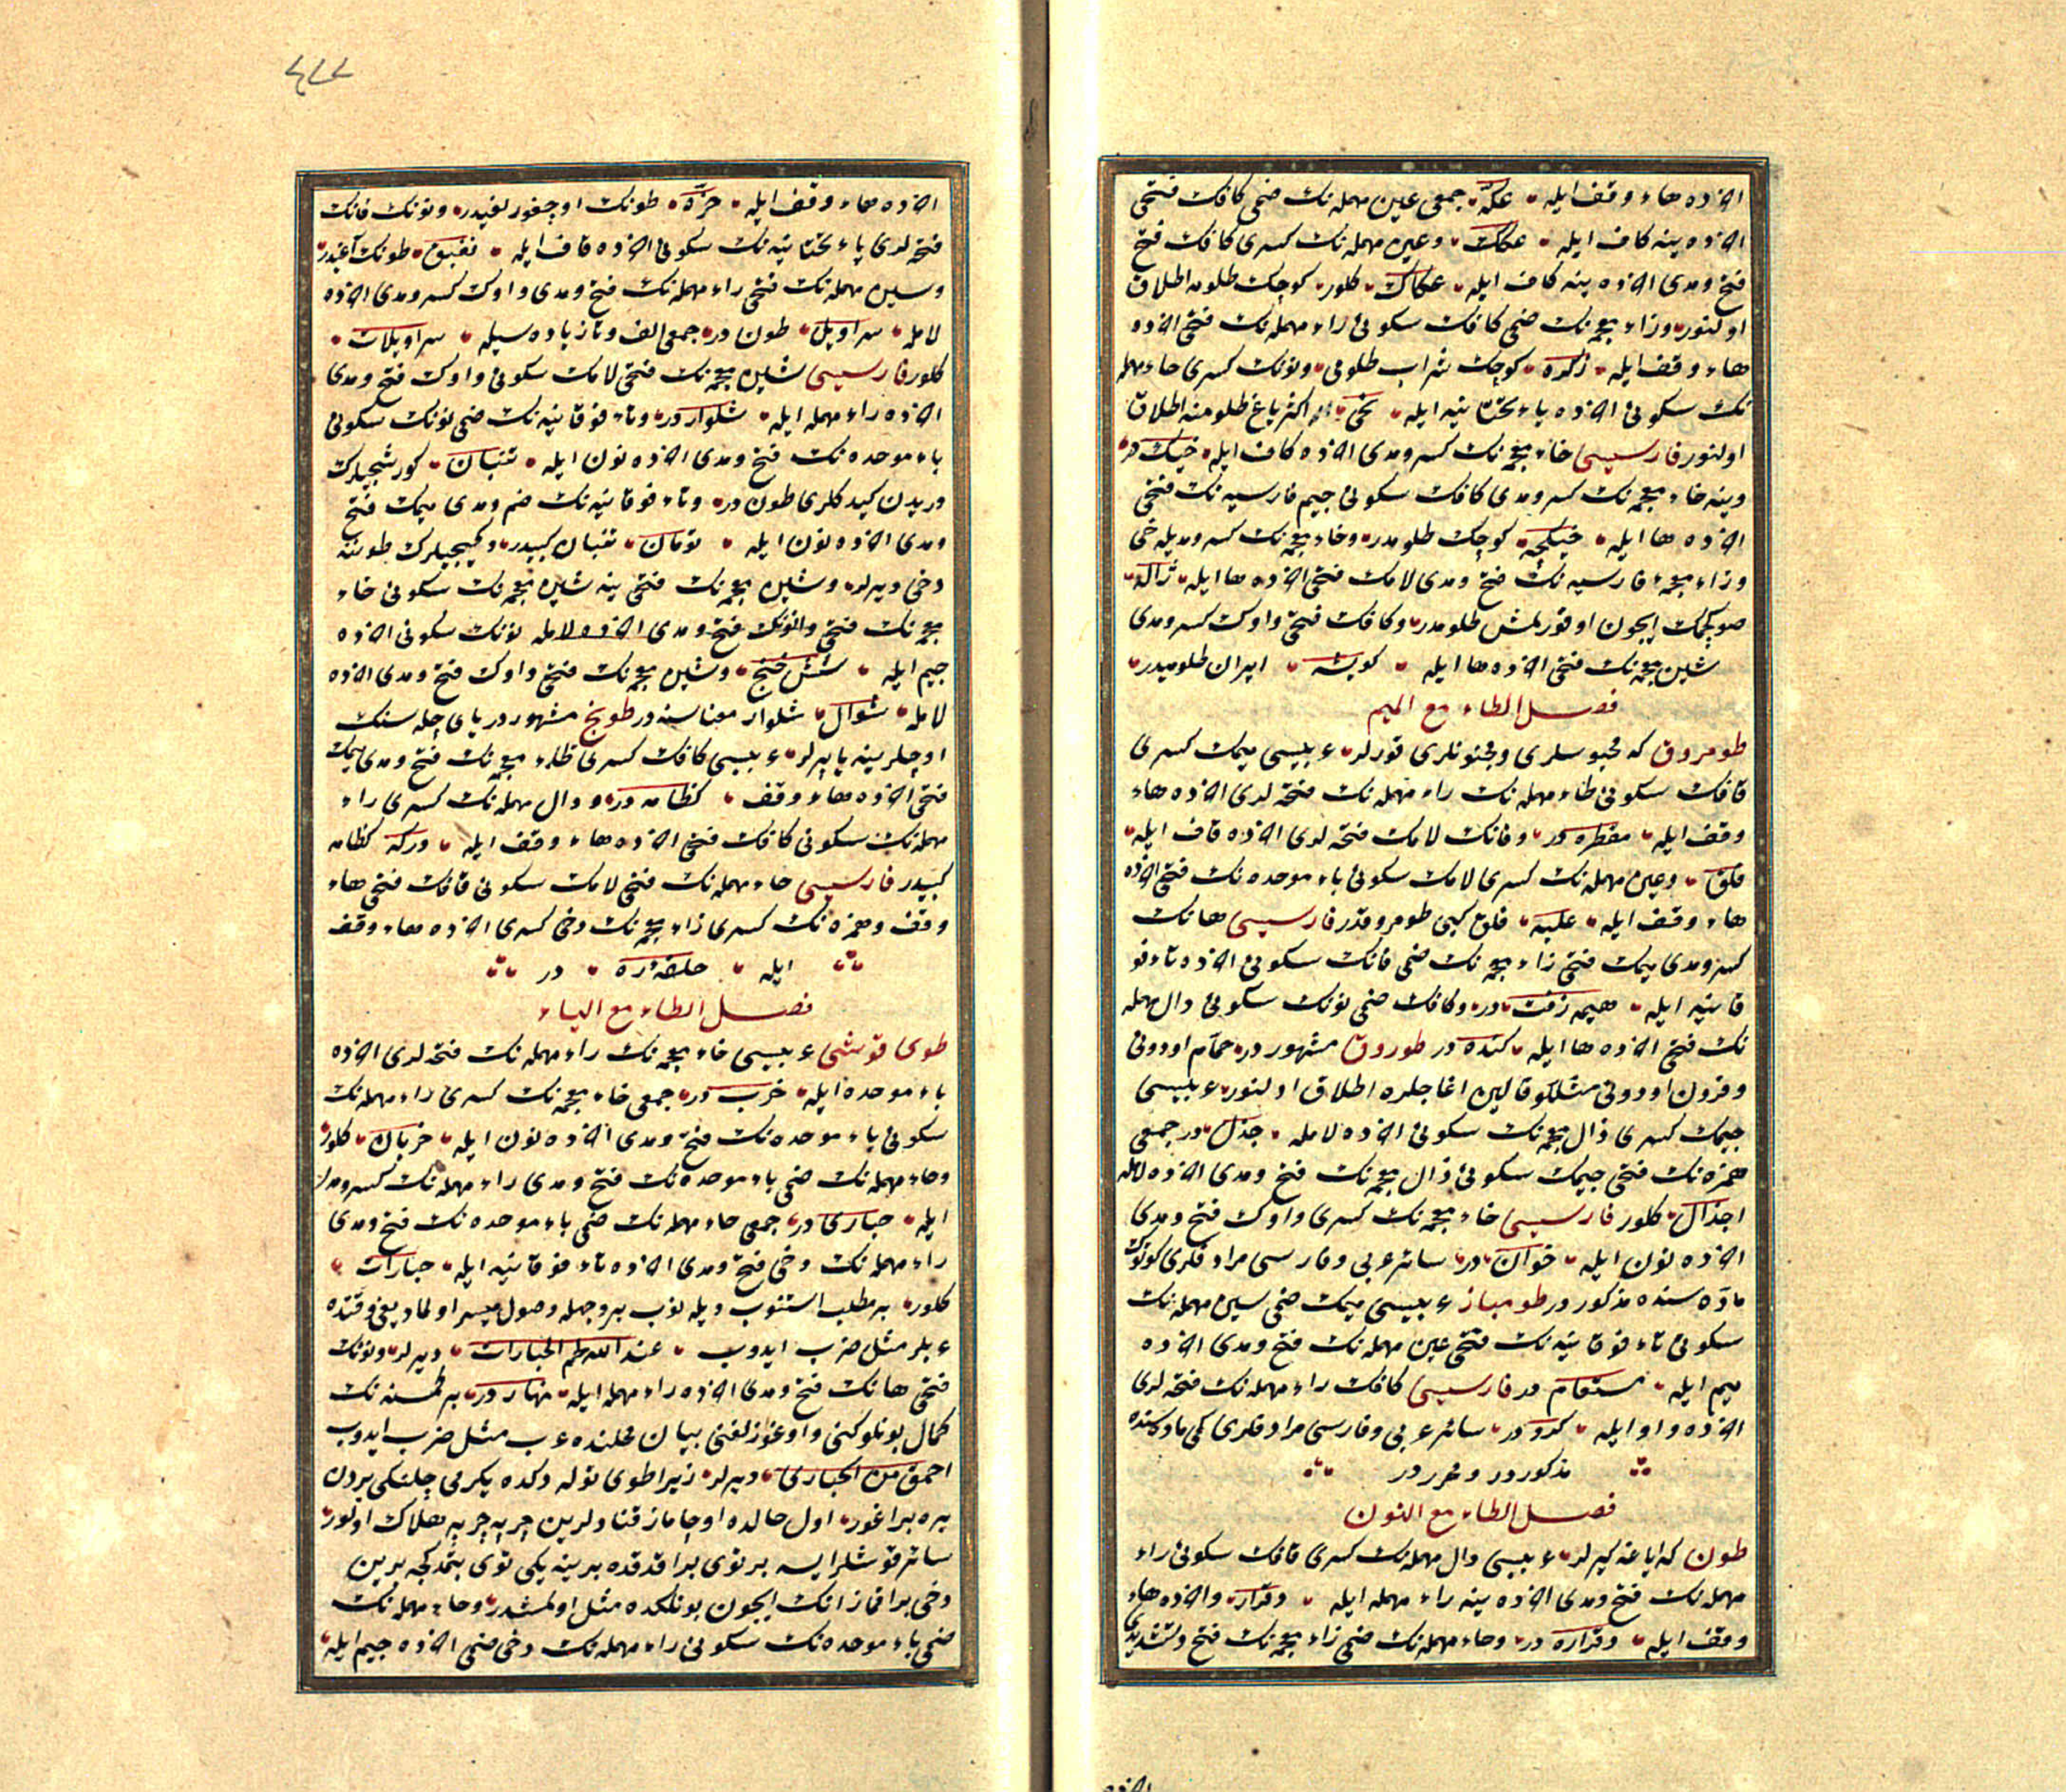 آخرده هاء وقف ايله عكّه جمعى عين مهمله نك ضمى كافك فتحى
آخرده ينه كاف ايله عكك وعين مهمله نك كسرى كافك فتح
فتح ومدى آخرده ينه كاف ايله عكاك كلور كوچك طلومه اطلاق
اولنور وزاء معجمه نك ضمى كافك سكونى راء مهمله نك فتحى آخرده
هاء وقف ايله زكره كوچك شراب طلومى ونونك كسرى حاء مهمله
نك سكونى آخرده ياء تحتانيه ايله نحى در اكثر ياغ طلومنه اطلاق
اولنور فارسيسى خاء معجمه نك كسر ومدى آخرده كاف ايله خيك در
وينه خاء معجمه نك كسر ومدى كافك سكونى جيم فارسيه نك فتحى
آخرده ها ايله خيكچه كوچك طلومدر وخاء معجمه نك كسر ومديله خى
وزاء معجمه فارسيه نك فتح ومدى لامك فتحى آخرده ها ايله ژاله
صو كچمك ايچون اوفورلمش طلومدر وكافك فتحى واوك كسر ومدى
شين معجمه نك فتحى آخرده ها ايله كويشه ايران طلوميدر
فصل الطاء مع الميم
طومروق كه محبوسلرى ومجنونلرى قورلر عربيسى ميمك كسرى
قافك سكونى طاء مهمله نك راء مهمله نك فتحه لرى آخرده هاء
وقف ايله مقطره در وفانك لامك فتحه لرى آخرده قاف ايله
فلق وعين مهمله نك كسرى لامك سكونى باء موحده نك فتحى آخرده
هاء وقف ايله علبه فلق كبى طومروقدر فارسيسى هانك
كسر ومدى ميمك فتحى زاء معجمه نك ضمى فانك سكونى آخرده تاء فو
قانيه ايله هيمه زفت در وكافك ضمى نونك سكونى دال مهمله
نك فتحى آخرده ها ايله كنده در طوروق مشهور در حمام اودونى
وفرون اودونى مثللو قالين اغاجلره اطلاق اولنور عربيسى
جيمك كسرى ذال معجمه نك سكونى آخرده لامله جذل در جمعى
همزه نك فتحى جيمك سكونى ذال معجمه نك فتح ومدى آخرده لامله
اجذال كلور فارسيسى خاء معجمه نك كسرى واوك فتح ومدى
آخرده نون ايله خوان در سائر عربى وفارسى مرادفلرى كوتوك
ماده سنده مذكور در طومباز عربيسى ميمك ضمى سين مهمله نك
سكونى تاء فوقانيه نك فتحى عين مهمله نك فتح ومدى آخرده
ميم ايله مستعام در فارسيسى كافك راء مهمله نك فتحه لرى
آخرده واو ايله كرو در سائر عربى وفارسى مرادفلرى كمى ماده سنده
مذكور در ومحرر در
فصل الطاء مع النون
طون كه اياغه كيرلر عربيسى دال مهمله نك كسرى قافك سكونى راء
مهمله نك فتح ومدى آخرده ينه راء مهمله ايله دقرار وآخرده هاء
وقف ايله دقراره در وحاء مهمله نك ضمى زاء معجمه نك فتح وتشديدى
٤٧٧
آخرده هاء وقف ايله حزّه طونك اوچقورلغيدر ونونك فانك
فتحه لرى ياء تحتانيه نك سكونى آخرده قاف ايله نفيق طونك آغيدر
وسين مهمله نك فتحى راء مهمله نك فتح ومدى واوك كسر ومدى آخرده
لامله سراويل طون در جمعى الف وتا زياده سيله سراويلات
كلور فارسيسى شين معجمه نك فتحى لامك سكونى واوك فتح ومدى
آخرده راء مهمله ايله شلوار در وتاء فوقانيه نك ضمى نونك سكونى
باء موحده نك فتح ومدى آخرده نون ايله تنبان كورشجيلرك
دريدن كيدكلرى طون در وتاء فوقانيه نك ضم ومدى ميمك فتح
ومدى آخرده نون ايله تومان تنبان كبيدر وكميجيلرك طوننه
دخى ديرلر وشين معجمه نك فتحى ينه شين معجمه نك سكونى خاء
معجمه نك فتحى والفنك فتح ومدى آخرده لامله نونك سكونى آخرده
جيم ايله شش خنج وشين معجمه نك فتحى واوك فتح ومدى آخرده
لامله شوال شلوار معناسنه در طونج مشهور در ياى چله سنك
اوچلرينه ياپرلر عربيسى كافك كسرى ظاء معجمه نك فتح ومدى ميمك
فتحى آخرده هاء وقف كظامه در ودال مهمله نك كسرى راء
مهمله نك سكونى كافك فتحى آخرده هاء وقف ايله دركه كظامه
كبيدر فارسيسى حاء مهمله نك فتحى لامك سكونى قافك فتحى هاء
وقف وهمزه نك كسرى زاء معجمه نك دخى كسرى آخرده هاء وقف
ايله حلقه ازه در
فصل الطاء مع الياء
طوى قوشى عربيسى خاء معجمه نك راء مهمله نك فتحه لرى آخرده
باء موحده ايله خرب در جمعى خاء معجمه نك كسرى راء مهمله نك
سكونى باء موحده نك فتح ومدى آخرده نون ايله خربان كلور
وحاء مهمله نك ضمى باء موحده نك فتح ومدى راء مهمله نك كسر ومدى
ايله حبارى در جمعى حاء مهمله نك ضمى باء موحده نك فتح ومدى
راء مهمله نك دخى فتح ومدى آخرده تاء فوقانيه ايله حبارات
كلور بر مطلب استنوب ديله نوب بر وجهله وصول ميسر اولماديغى وقتده
عربلر مثل ضرب ايدوب عند الله لحم الحبارات ديرلر ونونك
فتحى هانك فتح ومدى آخرده راء مهمله ايله نهار در بر كمسنه نك
كمال بونلوكنى واوغوزلغنى بيان محلنده عرب مثل ضرب ايدوب
احمق من الحبارى ديرلر زيرا طوى توله دكده يكرمى چلنكى بردن
بره براغور اول حالده اوچاماز قنادلرين چرپه چرپه هلاك اولور
سائر قوشلر ايسه بر توى براقدقده برينه يكى توى بتمدكجه برين
دخى براقماز انك ايچون بونلكده مثل اولمشدر وحاء مهمله نك
ضمى باء موحده نك سكونى راء مهمله نك دخى ضمى آخرده جيم ايله